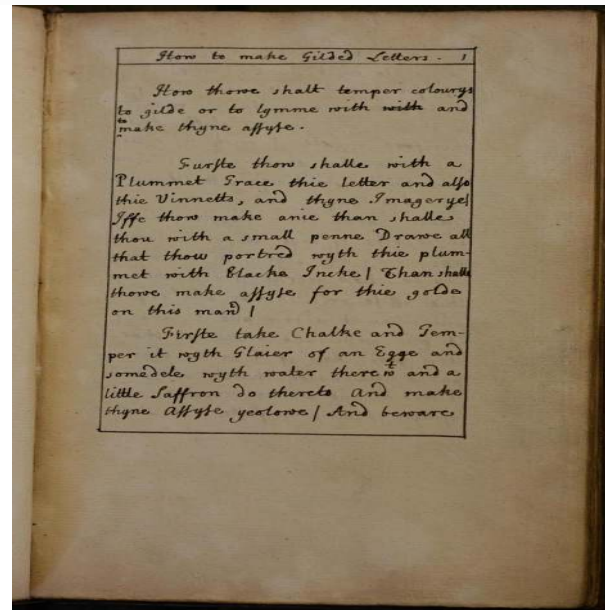 How to make Gilded Letters. 1
How thowe shalt temper colourys
to gilde or to lymme with with and
to
make thyne assyse.
Furste thow shalle with a
Plummet Trace thie letter and also
thie Vinnetts, and thyne Imageryes
Iffe thow make anie than shalle
thou with a small penne Drawe all
that thow portred wyth thie plum-
met with Blacke Incke / Than shalle
thowe make assyse for thie golde
on this man̄ /
Firste take Chalke and Tem-
per it wyth Glaier of an Egge and
somedele wyth water therewt and a
little Saffron do thereto And make
thyne Assyse yeolowe / And beware